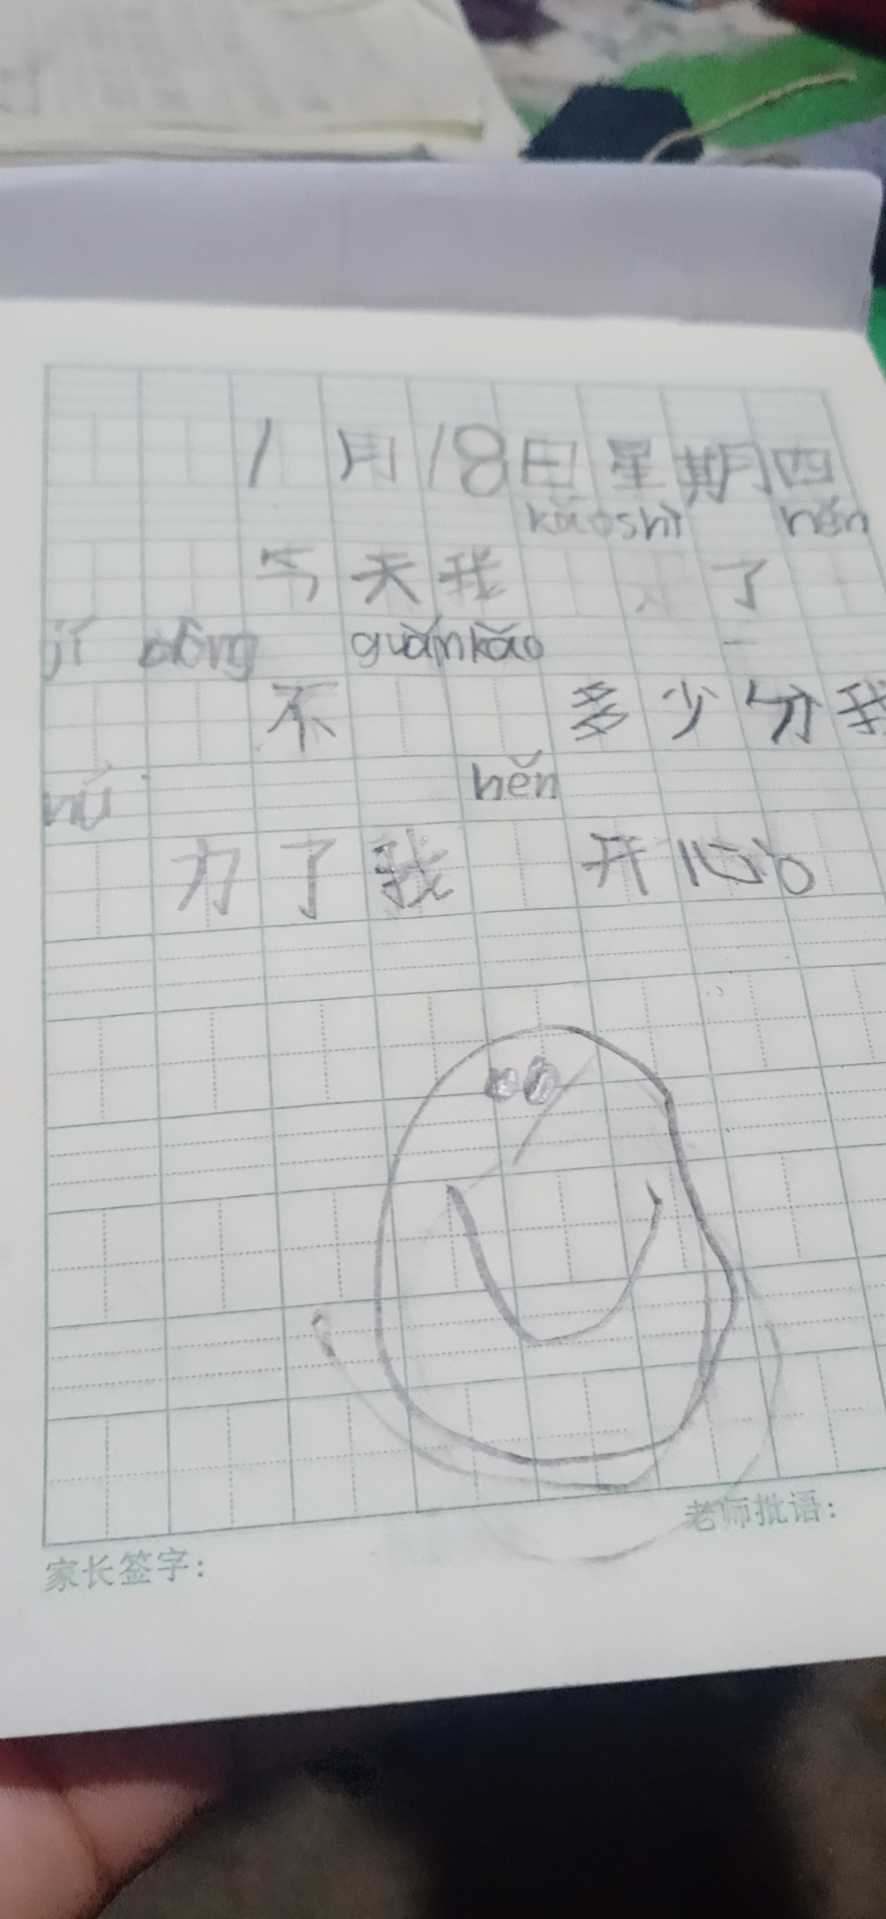 1月18日星期四
kǎoshì hěn
今天我 了
jī dòng guǎnkǎo
不 多少分我
nǔ hěn
力了我 开心。
老师批语：
家长签字：